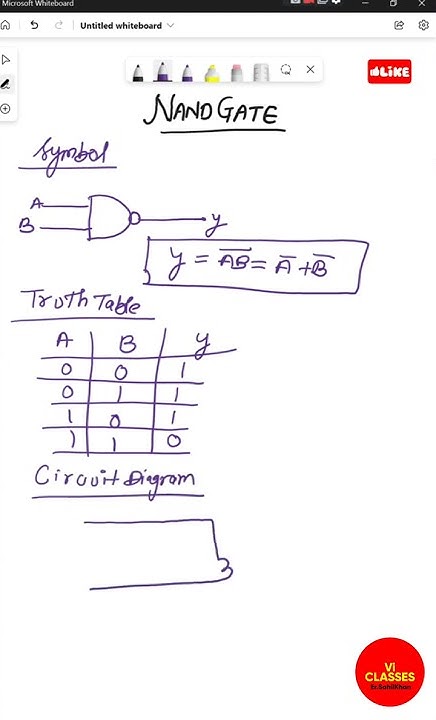 Microsoft Whiteboard
Untitled whiteboard
LIKE
NAND GATE
Symbol
A
B
y
y = A̅B̅ = A̅ + B̅
Truth Table
A B y
0 0 1
0 1 1
1 0 1
1 1 0
Circuit Diagram
Vi
CLASSES
Er.SahilKhan